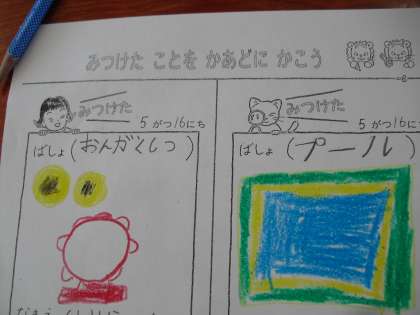 みつけた ことを かあどに かこう
みつけた
5がつ16にち
ばしょ(おんがくしつ)
みつけた
5がつ16にち
ばしょ(プール)